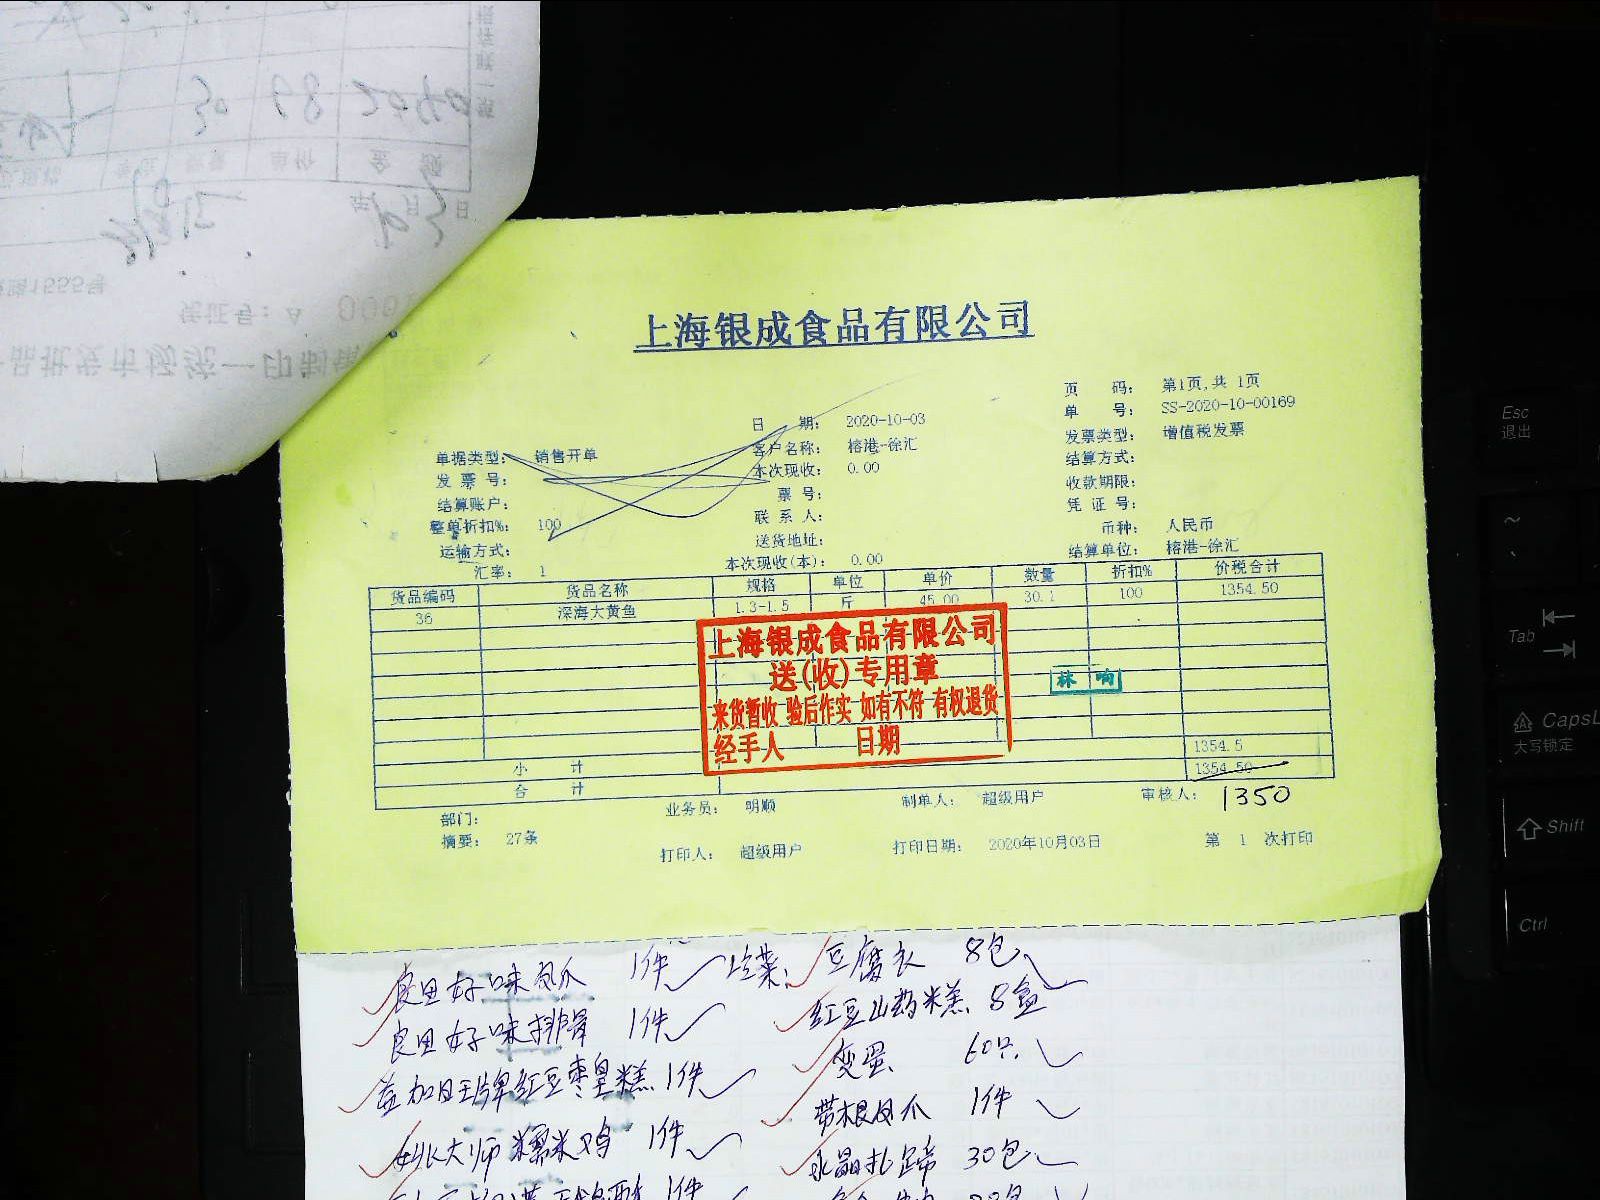 上海银成食品有限公司
页 码: 第1页,共 1页
日 期: 2020-10-03 单 号: SS-2020-10-00169
单据类型: 销售开单 客户名称: 榕港-徐汇 发票类型: 增值税发票
发 票 号: 本次现收: 0.00 结算方式:
结算账户: 票 号: 收款期限:
整单折扣%: 100 联 系 人: 凭 证 号:
运输方式: 送货地址: 币种: 人民币
汇率: 1 本次现收(本): 0.00 结算单位: 榕港-徐汇
货品编码 货品名称 规格 单位 单价 数量 折扣% 价税合计
36 深海大黄鱼 1.3-1.5 斤 45.00 30.1 100 1354.50
上海银成食品有限公司
送(收)专用章
来货暂收 验后作实 如有不符 有权退货
经手人 日期
林 响
小 计 1354.5
合 计 1354.50
1350
部门: 业务员: 明顺 制单人: 超级用户 审核人:
摘要: 27条 打印人: 超级用户 打印日期: 2020年10月03日 第 1 次打印
良田好味凤爪 1件 豆腐衣 8包
良田好味排骨 1件 红豆山药米糕 8盒
益加日王牌红豆枣皇糕 1件 变蛋 60只
大师糯米鸡 1件 带根凤爪 1件
水晶扎蹄 30包
1件
Esc
退出
Tab
CapsL
大写锁定
Shift
Ctrl